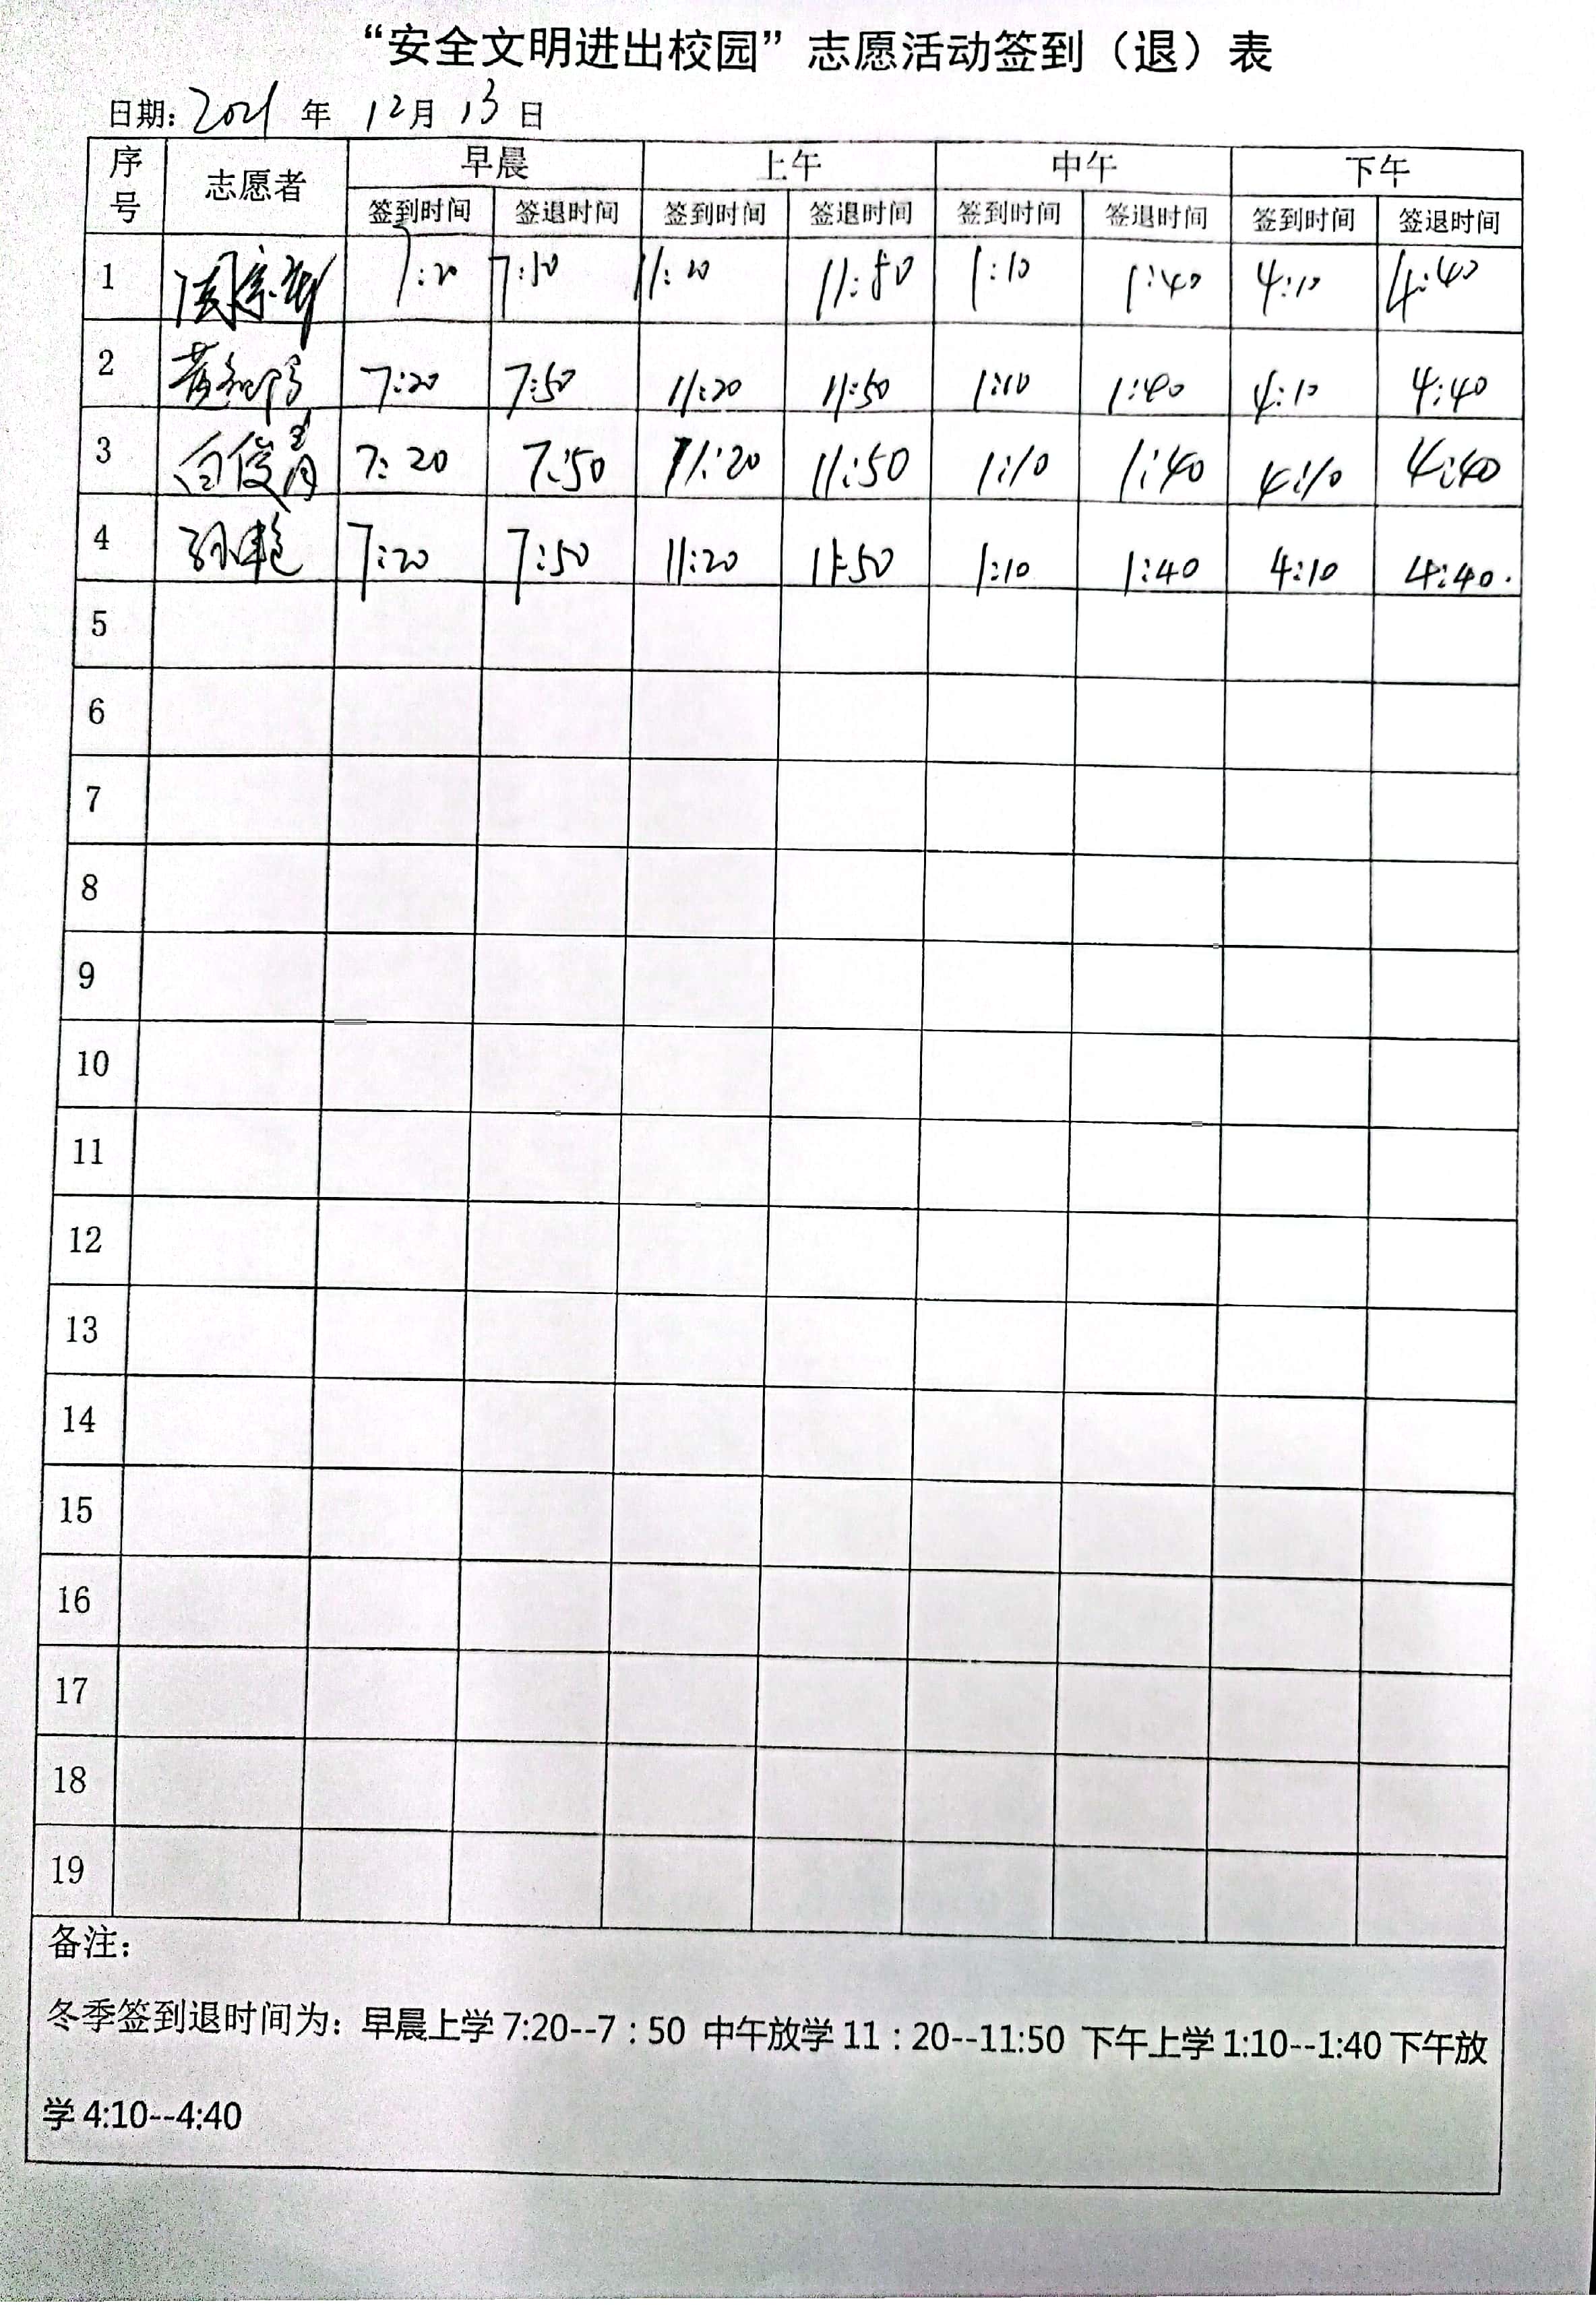 “安全文明进出校园”志愿活动签到（退）表
日期: 2021 年 12月 13 日
序号 志愿者 早晨 上午 中午 下午
签到时间 签退时间 签到时间 签退时间 签到时间 签退时间 签到时间 签退时间
1 7:20 7:50 11:20 11:50 1:10 1:40 4:10 4:40
2 7:20 7:50 11:20 11:50 1:10 1:40 4:10 4:40
3 白俊青 7:20 7:50 11:20 11:50 1:10 1:40 4:10 4:40
4 孙艳 7:20 7:50 11:20 11:50 1:10 1:40 4:10 4:40.
5
6
7
8
9
10
11
12
13
14
15
16
17
18
19
备注：
冬季签到退时间为：早晨上学 7:20--7：50 中午放学 11：20--11:50 下午上学 1:10--1:40 下午放
学 4:10--4:40